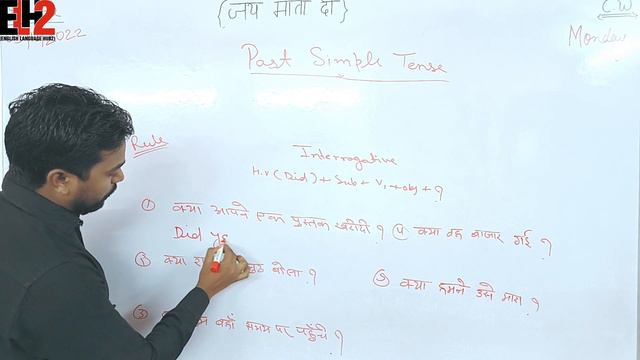 ELH2
ENGLISH LANGUAGE HUB2
2022
{जय माता दी}
C.W
Monday
Past Simple Tense
Rule
Interrogative
H.v (Did) + Sub + V1 + obj + ?
① क्या आपने एक पुस्तक खरीदी ?
Did yo
④ क्या वह बाजार गई ?
② क्या बोला ?
⑤ क्या हमने उसे मारा ?
③ वहाँ समय पर पहुँचे ?